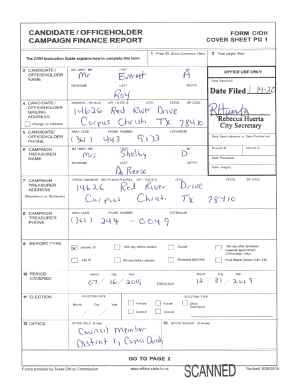 CANDIDATE / OFFICEHOLDER FORM C/OH
CAMPAIGN FINANCE REPORT COVER SHEET PG 1
The C/OH Instruction Guide explains how to complete this form.
1 Filer ID (Ethics Commission Filers) 2 Total pages filed:
3 CANDIDATE / OFFICEHOLDER NAME
MS / MRS / MR FIRST MI
Mr Everett A
NICKNAME LAST SUFFIX
Roy
OFFICE USE ONLY
Date Received
Date Filed 1-14-20
RHuerta
Rebecca Huerta
City Secretary
4 CANDIDATE / OFFICEHOLDER MAILING ADDRESS
Change of Address
ADDRESS / PO BOX; APT / SUITE #; CITY; STATE; ZIP CODE
14626 Red River Drive
Corpus Christi TX 78410
5 CANDIDATE / OFFICEHOLDER PHONE
AREA CODE PHONE NUMBER EXTENSION
(361) 443 9173
Date Hand-delivered or Date Postmarked
Receipt # Amount $
Date Processed
Date Imaged
6 CAMPAIGN TREASURER NAME
MS / MRS / MR FIRST MI
Mrs Shelby D
NICKNAME LAST SUFFIX
DeReese
7 CAMPAIGN TREASURER ADDRESS
(Residence or Business)
STREET ADDRESS (NO PO BOX PLEASE); APT / SUITE #; CITY; STATE; ZIP CODE
14626 Red River Drive
Corpus Christi TX 78410
8 CAMPAIGN TREASURER PHONE
AREA CODE PHONE NUMBER EXTENSION
(361) 244-0049
9 REPORT TYPE
January 15 30th day before election Runoff 15th day after campaign treasurer appointment (Officeholder Only)
July 15 8th day before election Exceeded $500 limit Final Report (Attach C/OH - FR)
10 PERIOD COVERED
Month Day Year Month Day Year
07 / 16 / 2019 THROUGH 12 / 31 / 2019
11 ELECTION
ELECTION DATE ELECTION TYPE
Month Day Year
Primary Runoff Other Description
General Special
12 OFFICE
OFFICE HELD (if any)
Council Member
District 1, Corpus Christi
13 OFFICE SOUGHT (if known)
GO TO PAGE 2
Forms provided by Texas Ethics Commission www.ethics.state.tx.us Revised 9/28/2015
SCANNED